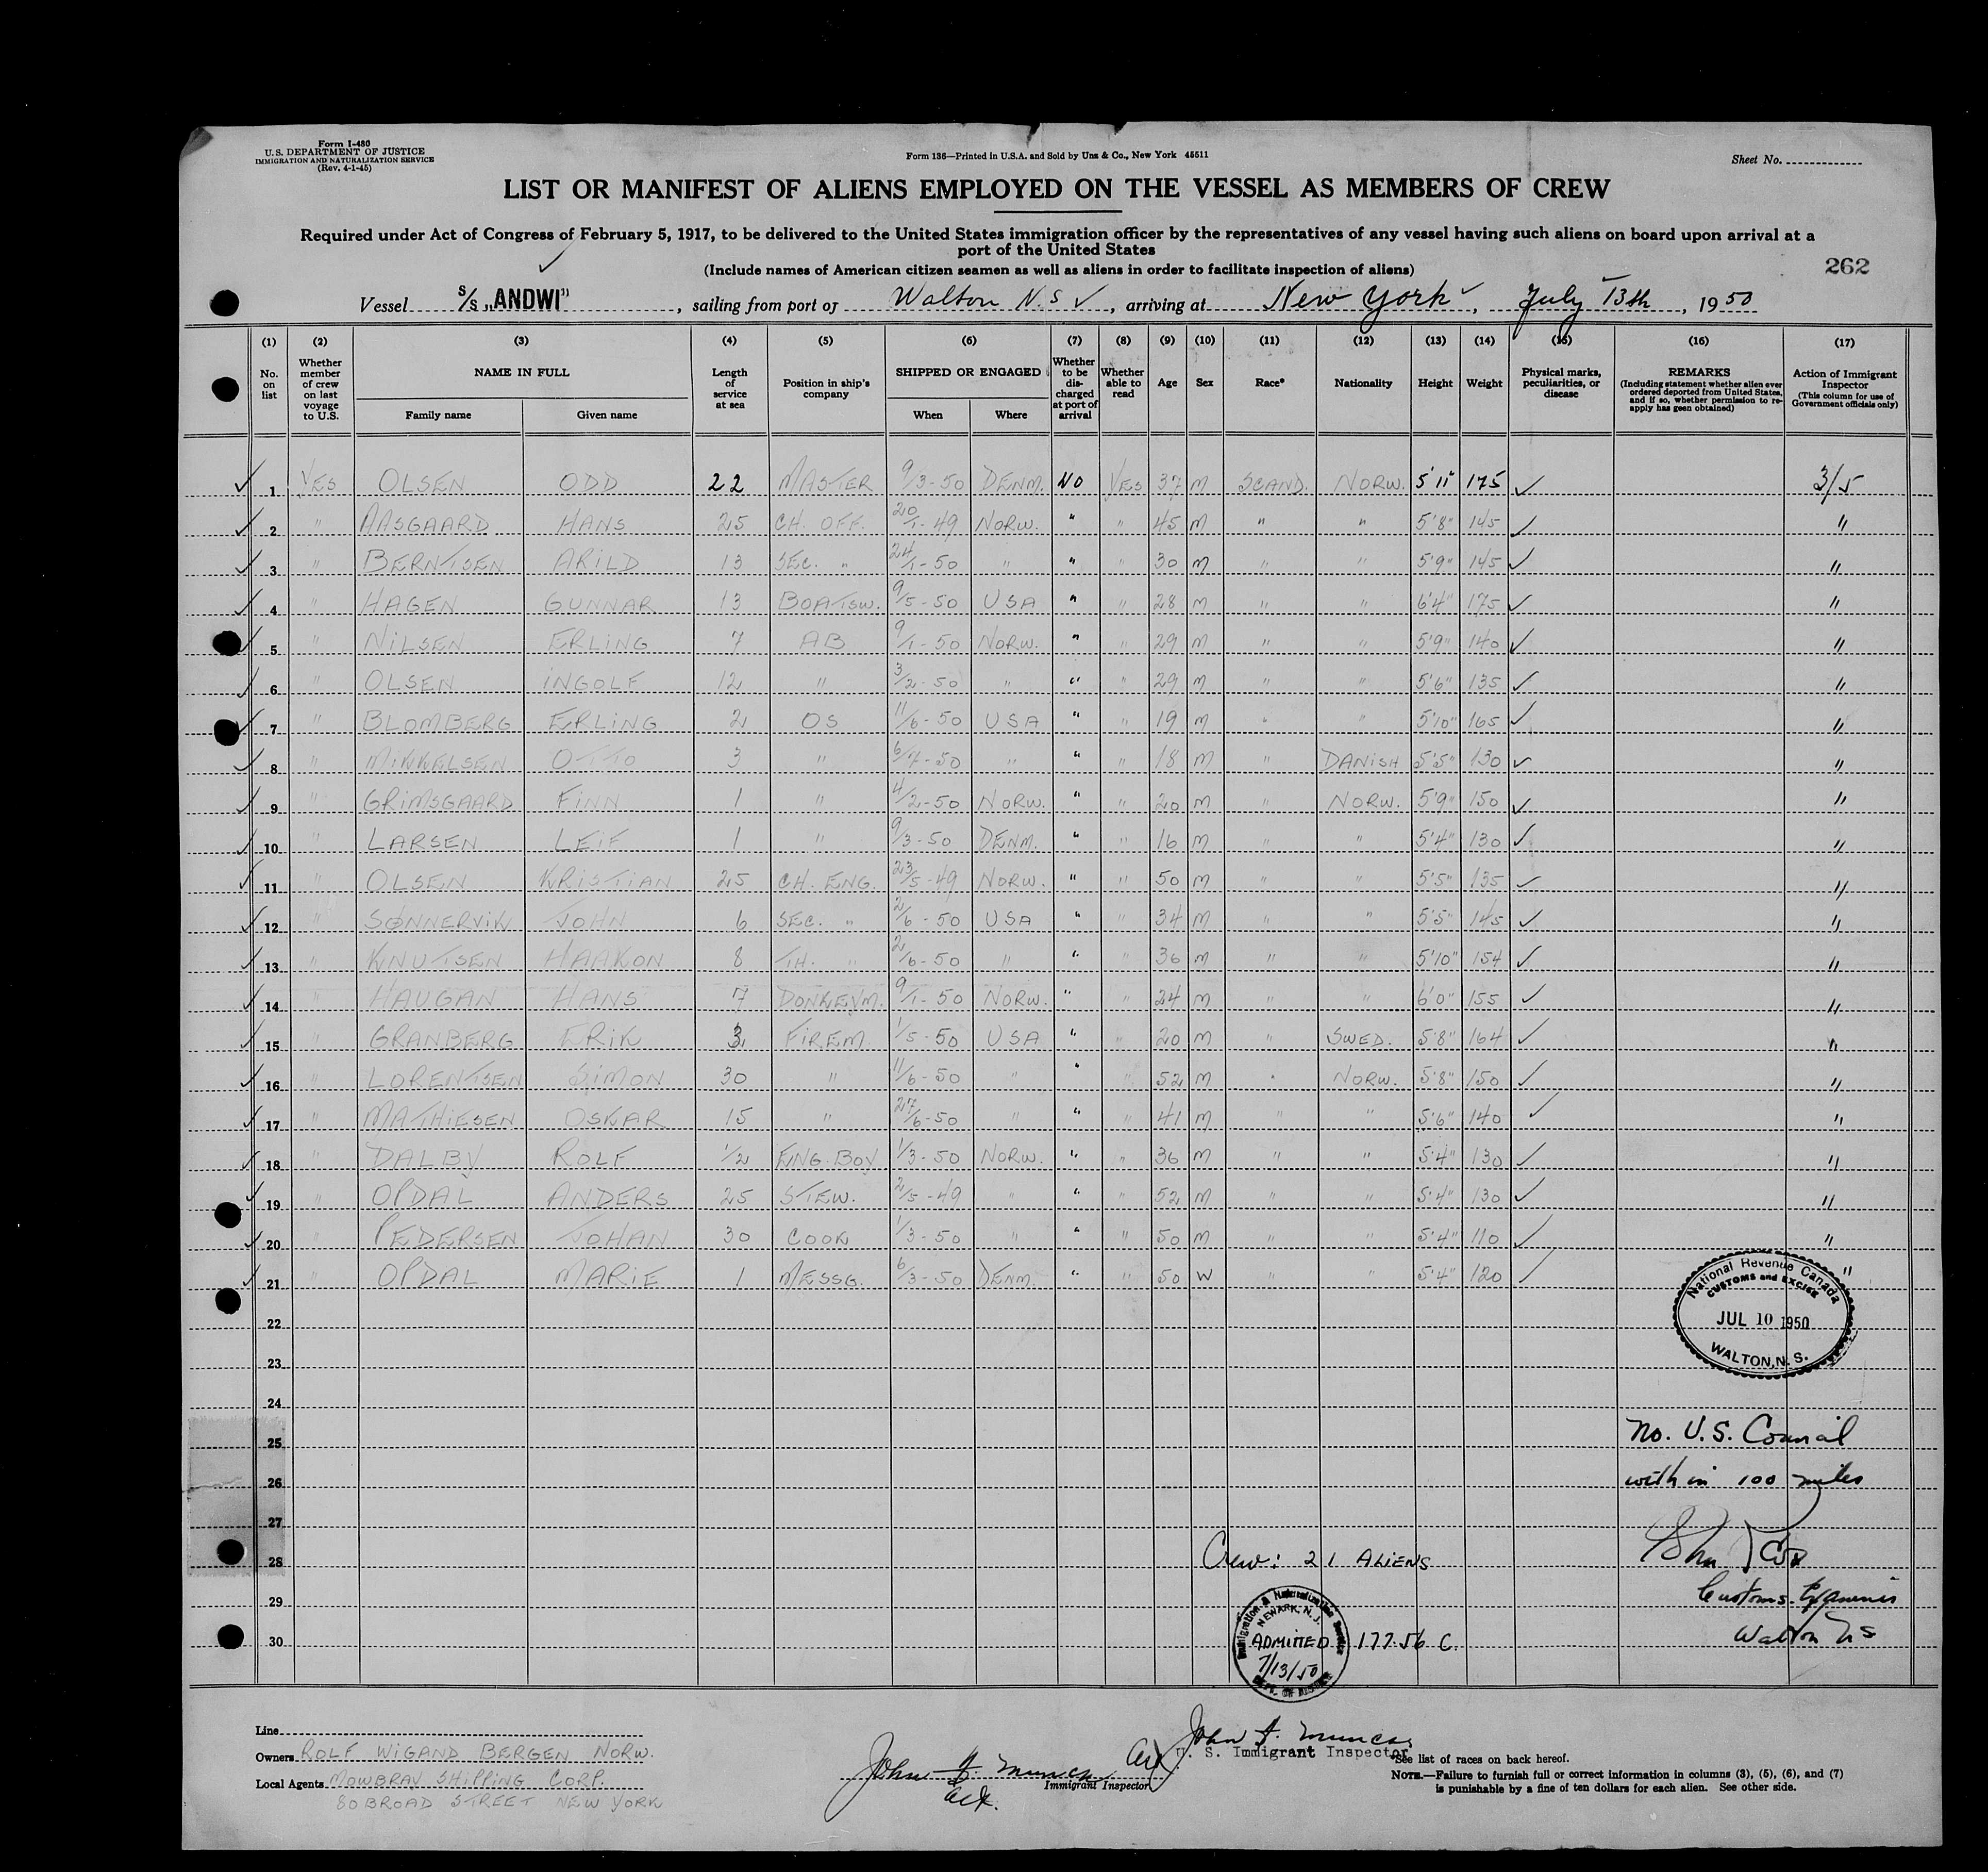 Form I-480
U.S. DEPARTMENT OF JUSTICE
IMMIGRATION AND NATURALIZATION SERVICE
(Rev. 4-1-45)
Form 136—Printed in U.S.A. and Sold by Unz & Co., New York 45511
Sheet No.
LIST OR MANIFEST OF ALIENS EMPLOYED ON THE VESSEL AS MEMBERS OF CREW
Required under Act of Congress of February 5, 1917, to be delivered to the United States immigration officer by the representatives of any vessel having such aliens on board upon arrival at a
port of the United States
(Include names of American citizen seamen as well as aliens in order to facilitate inspection of aliens)
262
Vessel S/S „ANDWI" , sailing from port of Walton N.S ✓, arriving at New York ✓, July 13th, 1950
(1) (2) (3) (4) (5) (6) (7) (8) (9) (10) (11) (12) (13) (14) (15) (16) (17)
No. on list
Whether member of crew on last voyage to U.S.
NAME IN FULL
Family name Given name
Length of service at sea
Position in ship's company
SHIPPED OR ENGAGED
When Where
Whether to be discharged at port of arrival
Whether able to read
Age Sex Race* Nationality Height Weight
Physical marks, peculiarities, or disease
REMARKS
(Including statement whether alien ever ordered deported from United States, and if so, whether permission to reapply has geen obtained)
Action of Immigrant Inspector
(This column for use of Government officials only)
✓ 1 YES OLSEN ODD 22 MASTER 9/3-50 DENM. NO YES 37 M SCAND. NORW. 5'11" 175 ✓ 3/5
✓ 2 " AASGAARD HANS 25 CH. OFF. 20/1-49 NORW. " " 45 M " " 5'8" 145 ✓ "
✓ 3 " BERNTSEN ARILD 13 SEC. " 24/1-50 " " " 30 M " " 5'9" 145 ✓ "
✓ 4 " HAGEN GUNNAR 13 BOATSW. 9/5-50 USA " " 28 M " " 6'4" 175 ✓ "
✓ 5 " NILSEN ERLING 7 AB 9/1-50 NORW. " " 29 M " " 5'9" 140 ✓ "
✓ 6 " OLSEN INGOLF 12 " 3/2-50 " " " 29 M " " 5'6" 135 ✓ "
✓ 7 " BLOMBERG ERLING 2 OS 11/6-50 USA " " 19 M " " 5'10" 165 ✓ "
✓ 8 " MIKKELSEN OTTO 3 " 6/4-50 " " " 18 M " DANISH 5'5" 130 ✓ "
✓ 9 " GRIMSGAARD FINN 1 " 4/2-50 NORW. " " 20 M " NORW. 5'9" 150 ✓ "
✓ 10 " LARSEN LEIF 1 " 9/3-50 DENM. " " 16 M " " 5'4" 130 ✓ "
✓ 11 " OLSEN KRISTIAN 25 CH. ENG. 23/5-49 NORW. " " 50 M " " 5'5" 135 ✓ "
✓ 12 " SØNNERVIK JOHN 6 SEC. " 2/6-50 USA " " 34 M " " 5'5" 145 ✓ "
✓ 13 " KNUTSEN HAAKON 8 TH. " 2/6-50 " " " 36 M " " 5'10" 154 ✓ "
✓ 14 " HAUGAN HANS 7 DONKEYM. 9/1-50 NORW. " " 24 M " " 6'0" 155 ✓ "
✓ 15 " GRANBERG ERIK 3 FIREM. 1/5-50 USA " " 20 M " SWED. 5'8" 164 ✓ "
✓ 16 " LORENTSEN SIMON 30 " 11/6-50 " " " 52 M " NORW. 5'8" 150 ✓ "
✓ 17 " MATHIESEN OSKAR 15 " 27/6-50 " " " 41 M " " 5'6" 140 ✓ "
✓ 18 " DALBY ROLF 1/2 ENG. BOY 1/3-50 NORW. " " 36 M " " 5'4" 130 ✓ "
✓ 19 " OPDAL ANDERS 25 STEW. 2/5-49 " " " 52 M " " 5'4" 130 ✓ "
✓ 20 " PEDERSEN JOHAN 30 COOK 1/3-50 " " " 50 M " " 5'4" 110 ✓ "
✓ 21 " OPDAL MARIE 1 MESSG. 6/3-50 DENM. " " 50 W " " 5'4" 120 ✓ "
22
23
24
25
26
27
28
29
30
National Revenue Canada
CUSTOMS and EXCISE
JUL 10 1950
WALTON, N. S.
No. U.S. Council
within 100 miles
Customs Examiner
Walton NS
Crew: 21 ALIENS
Immigration & Naturalization Service
NEWARK, N. J.
ADMITTED
7/13/50
177.56 C.
Line
Owners ROLF WIGAND BERGEN NORW.
Local Agents MOWBRAY SHIPPING CORP.
80 BROAD STREET NEW YORK
U. S. Immigrant Inspector
Immigrant Inspector
*See list of races on back hereof.
NOTE.—Failure to furnish full or correct information in columns (3), (5), (6), and (7)
is punishable by a fine of ten dollars for each alien. See other side.